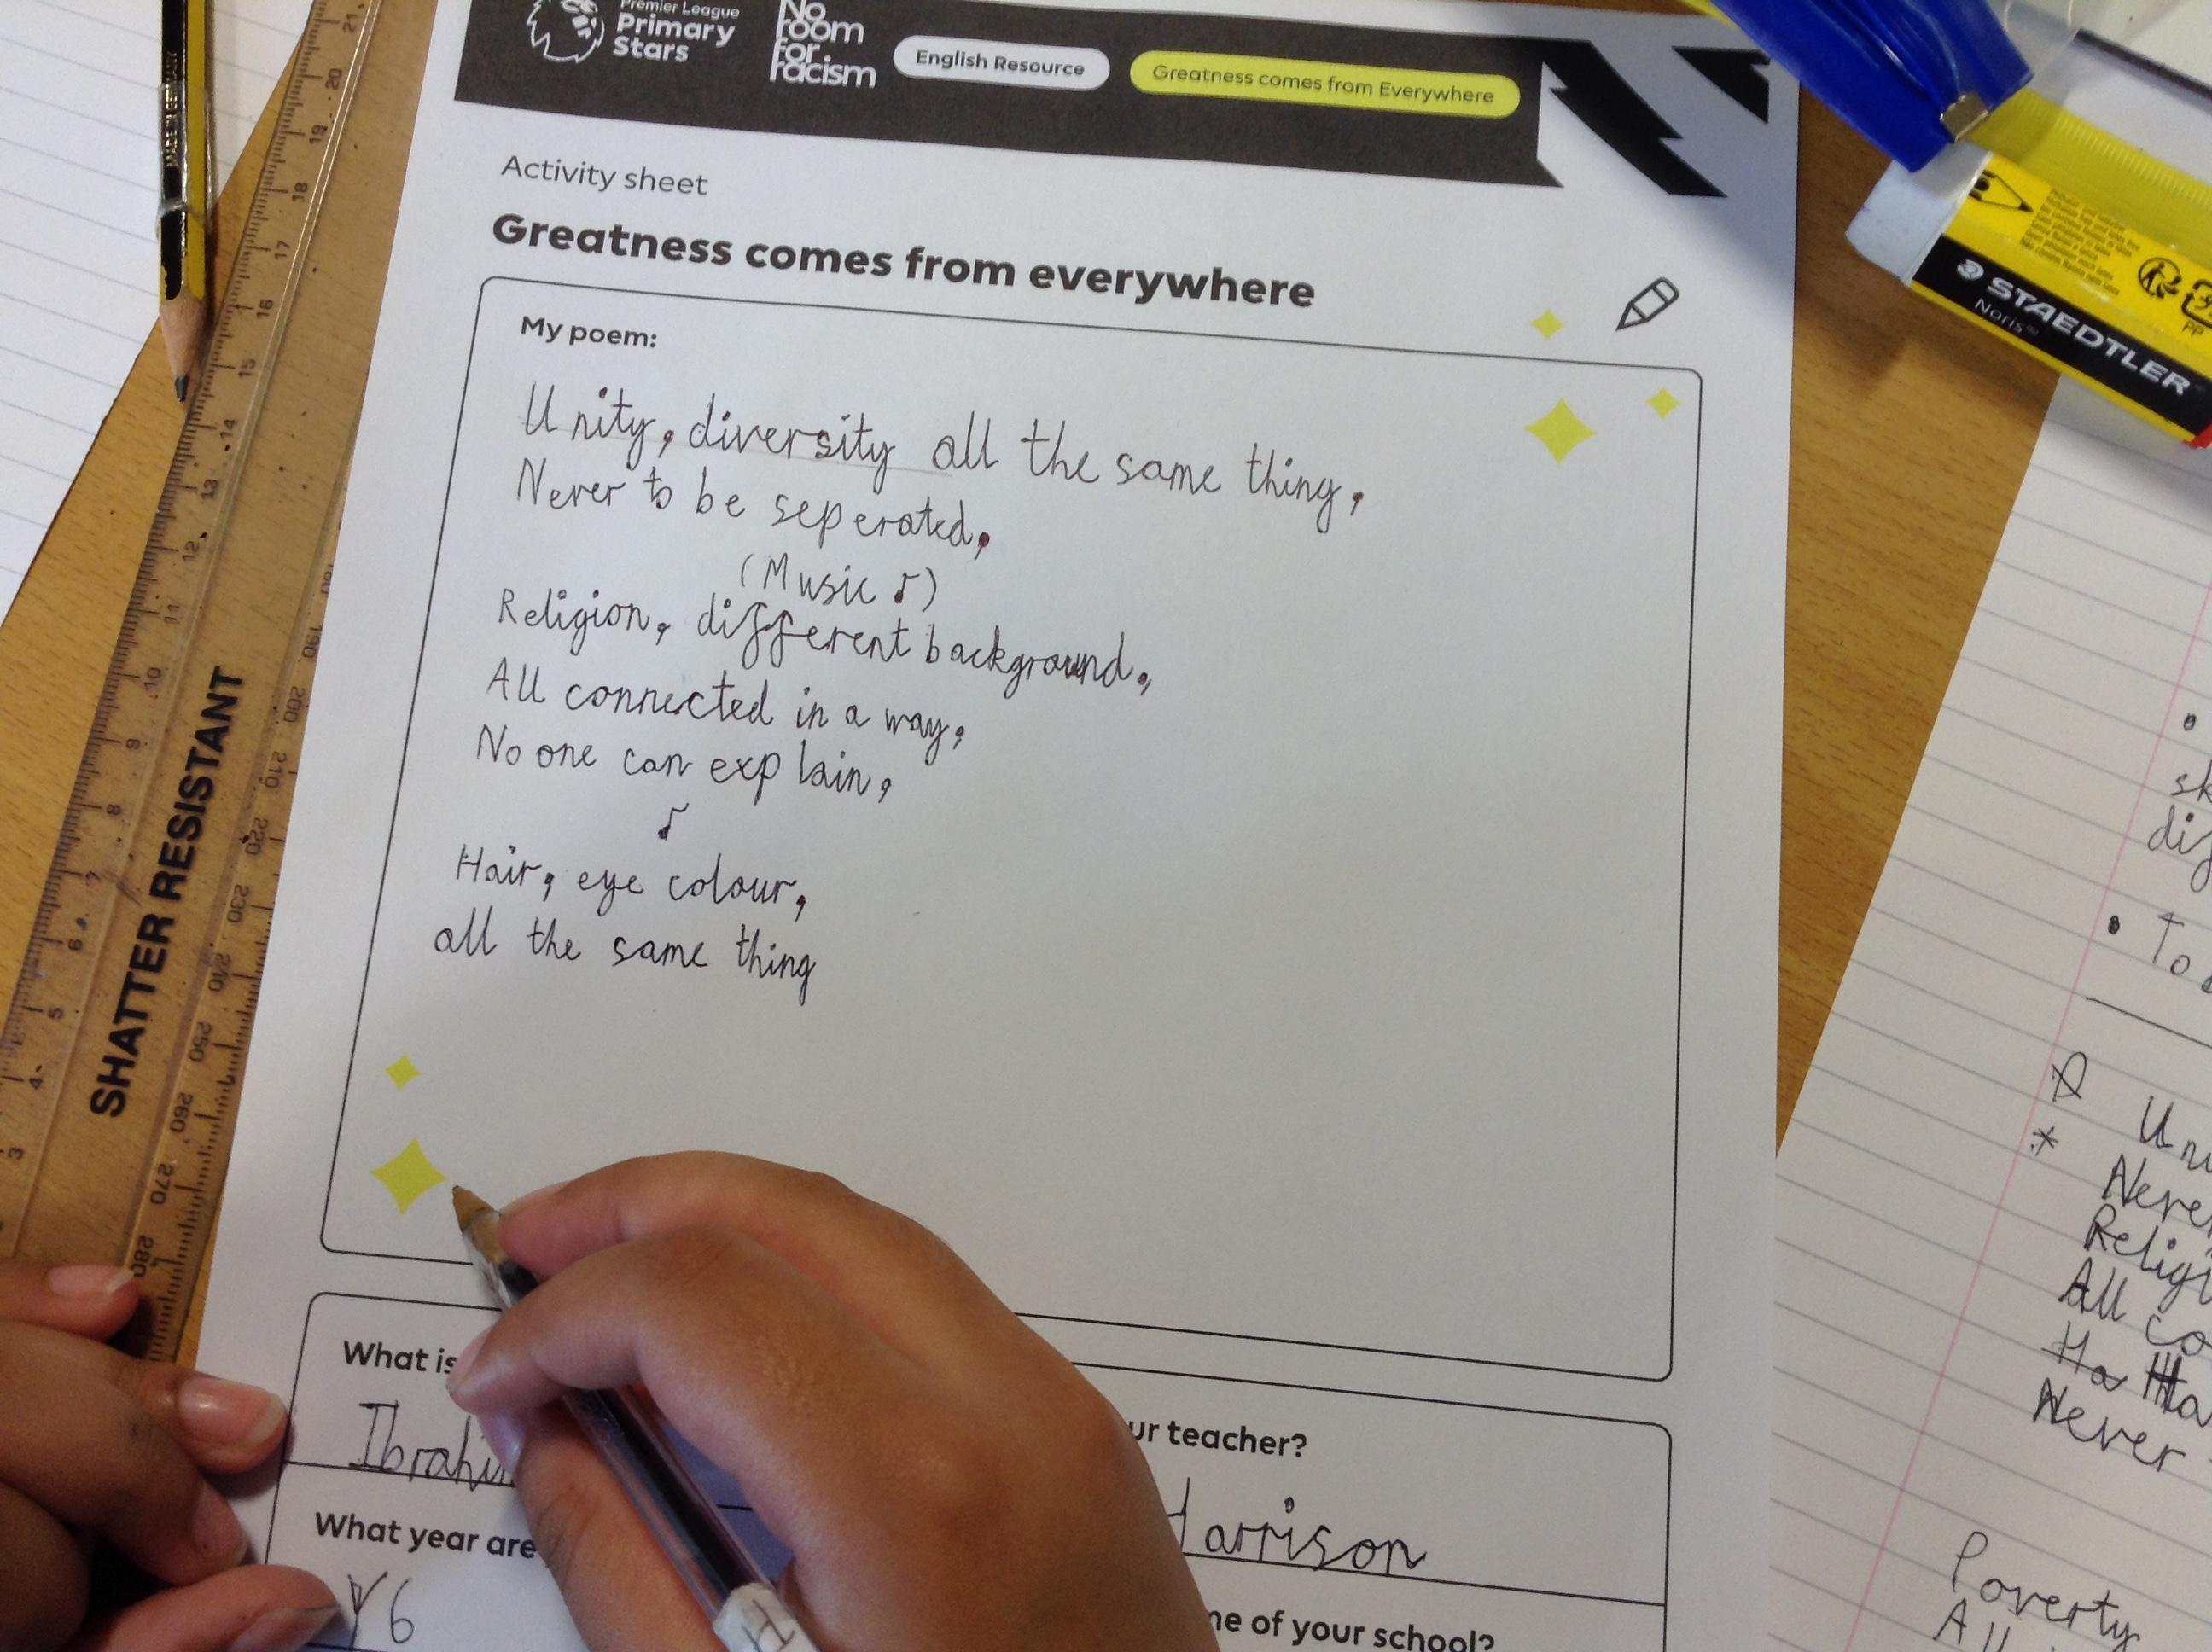 Premier League
Primary
Stars
No
room
for
racism
English Resource
Greatness comes from Everywhere
Activity sheet
Greatness comes from everywhere
My poem:
Unity, diversity all the same thing,
Never to be seperated,
(Music ♪)
Religion, different background,
All connected in a way,
No one can explain,
♪
Hair, eye colour,
all the same thing
What is
ur teacher?
Harrison
What year are
Y6
of your school?
SHATTER RESISTANT
MADE IN GERMANY
STAEDTLER
Noris
PP
To
Never
All
Never
Poverty